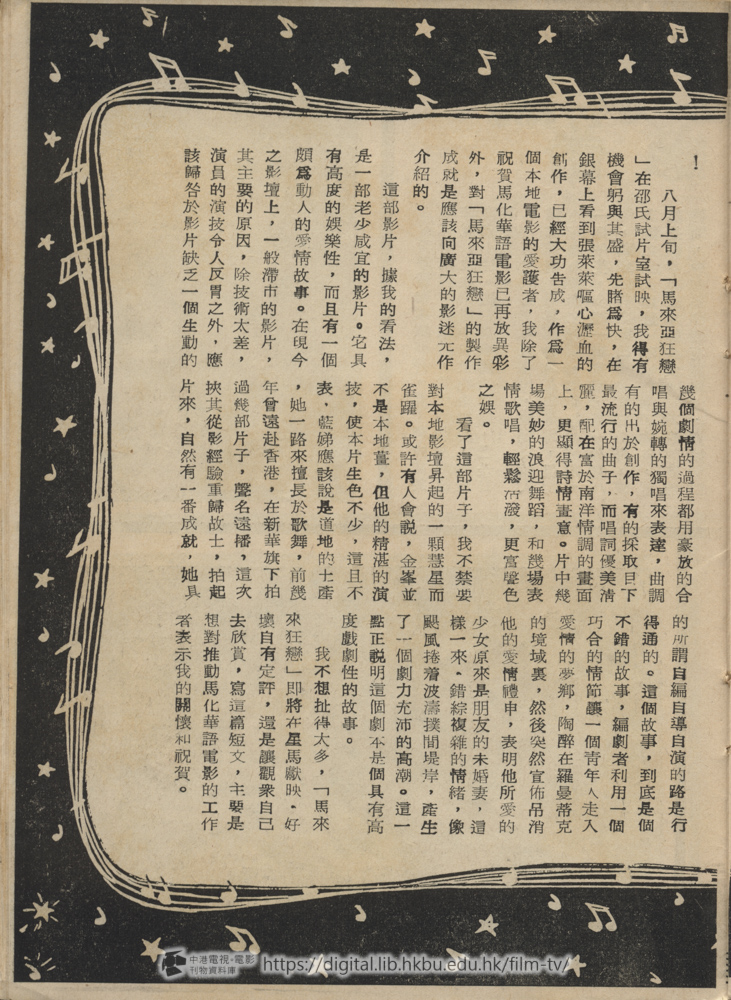 ！
八月上旬，「馬來亞狂戀
」在邵氏試片室試映，我得有
機會躬與其盛，先睹爲快，在
銀幕上看到張萊萊嘔心瀝血的
創作，已經大功告成，作爲一
個本地電影的愛護者，我除了
祝賀馬化華語電影已再放異彩
外，對「馬來亞狂戀」的製作
成就是應該向廣大的影迷尤作
介紹的。
這部影片，據我的看法，
是一部老少咸宜的影片。它具
有高度的娛樂性，而且有一個
頗爲動人的愛情故事。在現今
之影壇上，一般滯市的影片，
其主要的原因，除技術太差，
演員的演技令人反胃之外，應
該歸咎於影片缺乏一個生動的
幾個劇情的過程都用豪放的合
唱與婉轉的獨唱來表達，曲調
有的出於創作，有的採取目下
最流行的曲子，而唱詞優美清
麗，配在富於南洋情調的畫面
上，更顯得詩情畫意。片中幾
場美妙的浪迎舞蹈，和幾場表
情歌唱，輕鬆活潑，更富聲色
之娛。
看了這部片子，我不禁要
對本地影壇昇起的一顆慧星而
雀躍。或許有人會說，金峯並
不是本地薑，但他的精湛的演
技，使本片生色不少，這且不
表，藍娣應該說是道地的土產
，她一路來擅長於歌舞，前幾
年曾遠赴香港，在新華旗下拍
過幾部片子，聲名遠播，這次
挾其從影經驗重歸故土，拍起
片來，自然有一番成就，她具
的所謂自編自導自演的路是行
得通的。這個故事，到底是個
不錯的故事，編劇者利用一個
巧合的情節讓一個青年人走入
愛情的夢鄉，陶醉在羅曼蒂克
的境域裏，然後突然宣佈吊消
他的愛情禮申，表明他所愛的
少女原來是朋友的未婚妻，這
樣一來，錯綜複雜的情緒，像
颶風捲着波濤撲間堤岸，產生
了一個劇力充沛的高潮。這一
點正說明這個劇本是個具有高
度戲劇性的故事。
我不想扯得太多，「馬來
來狂戀」即將在星馬獻映，好
壞自有定評，還是讓觀衆自己
去欣賞，寫這篇短文，主要是
想對推動馬化華語電影的工作
者表示我的關懷和祝賀。
中港電視·電影
刊物資料庫
https://digital.lib.hkbu.edu.hk/film-tv/